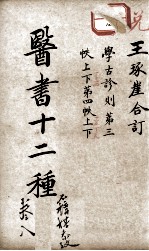 王琢崖合訂
學古診則第三
帙上下第四帙上下
醫書十二種